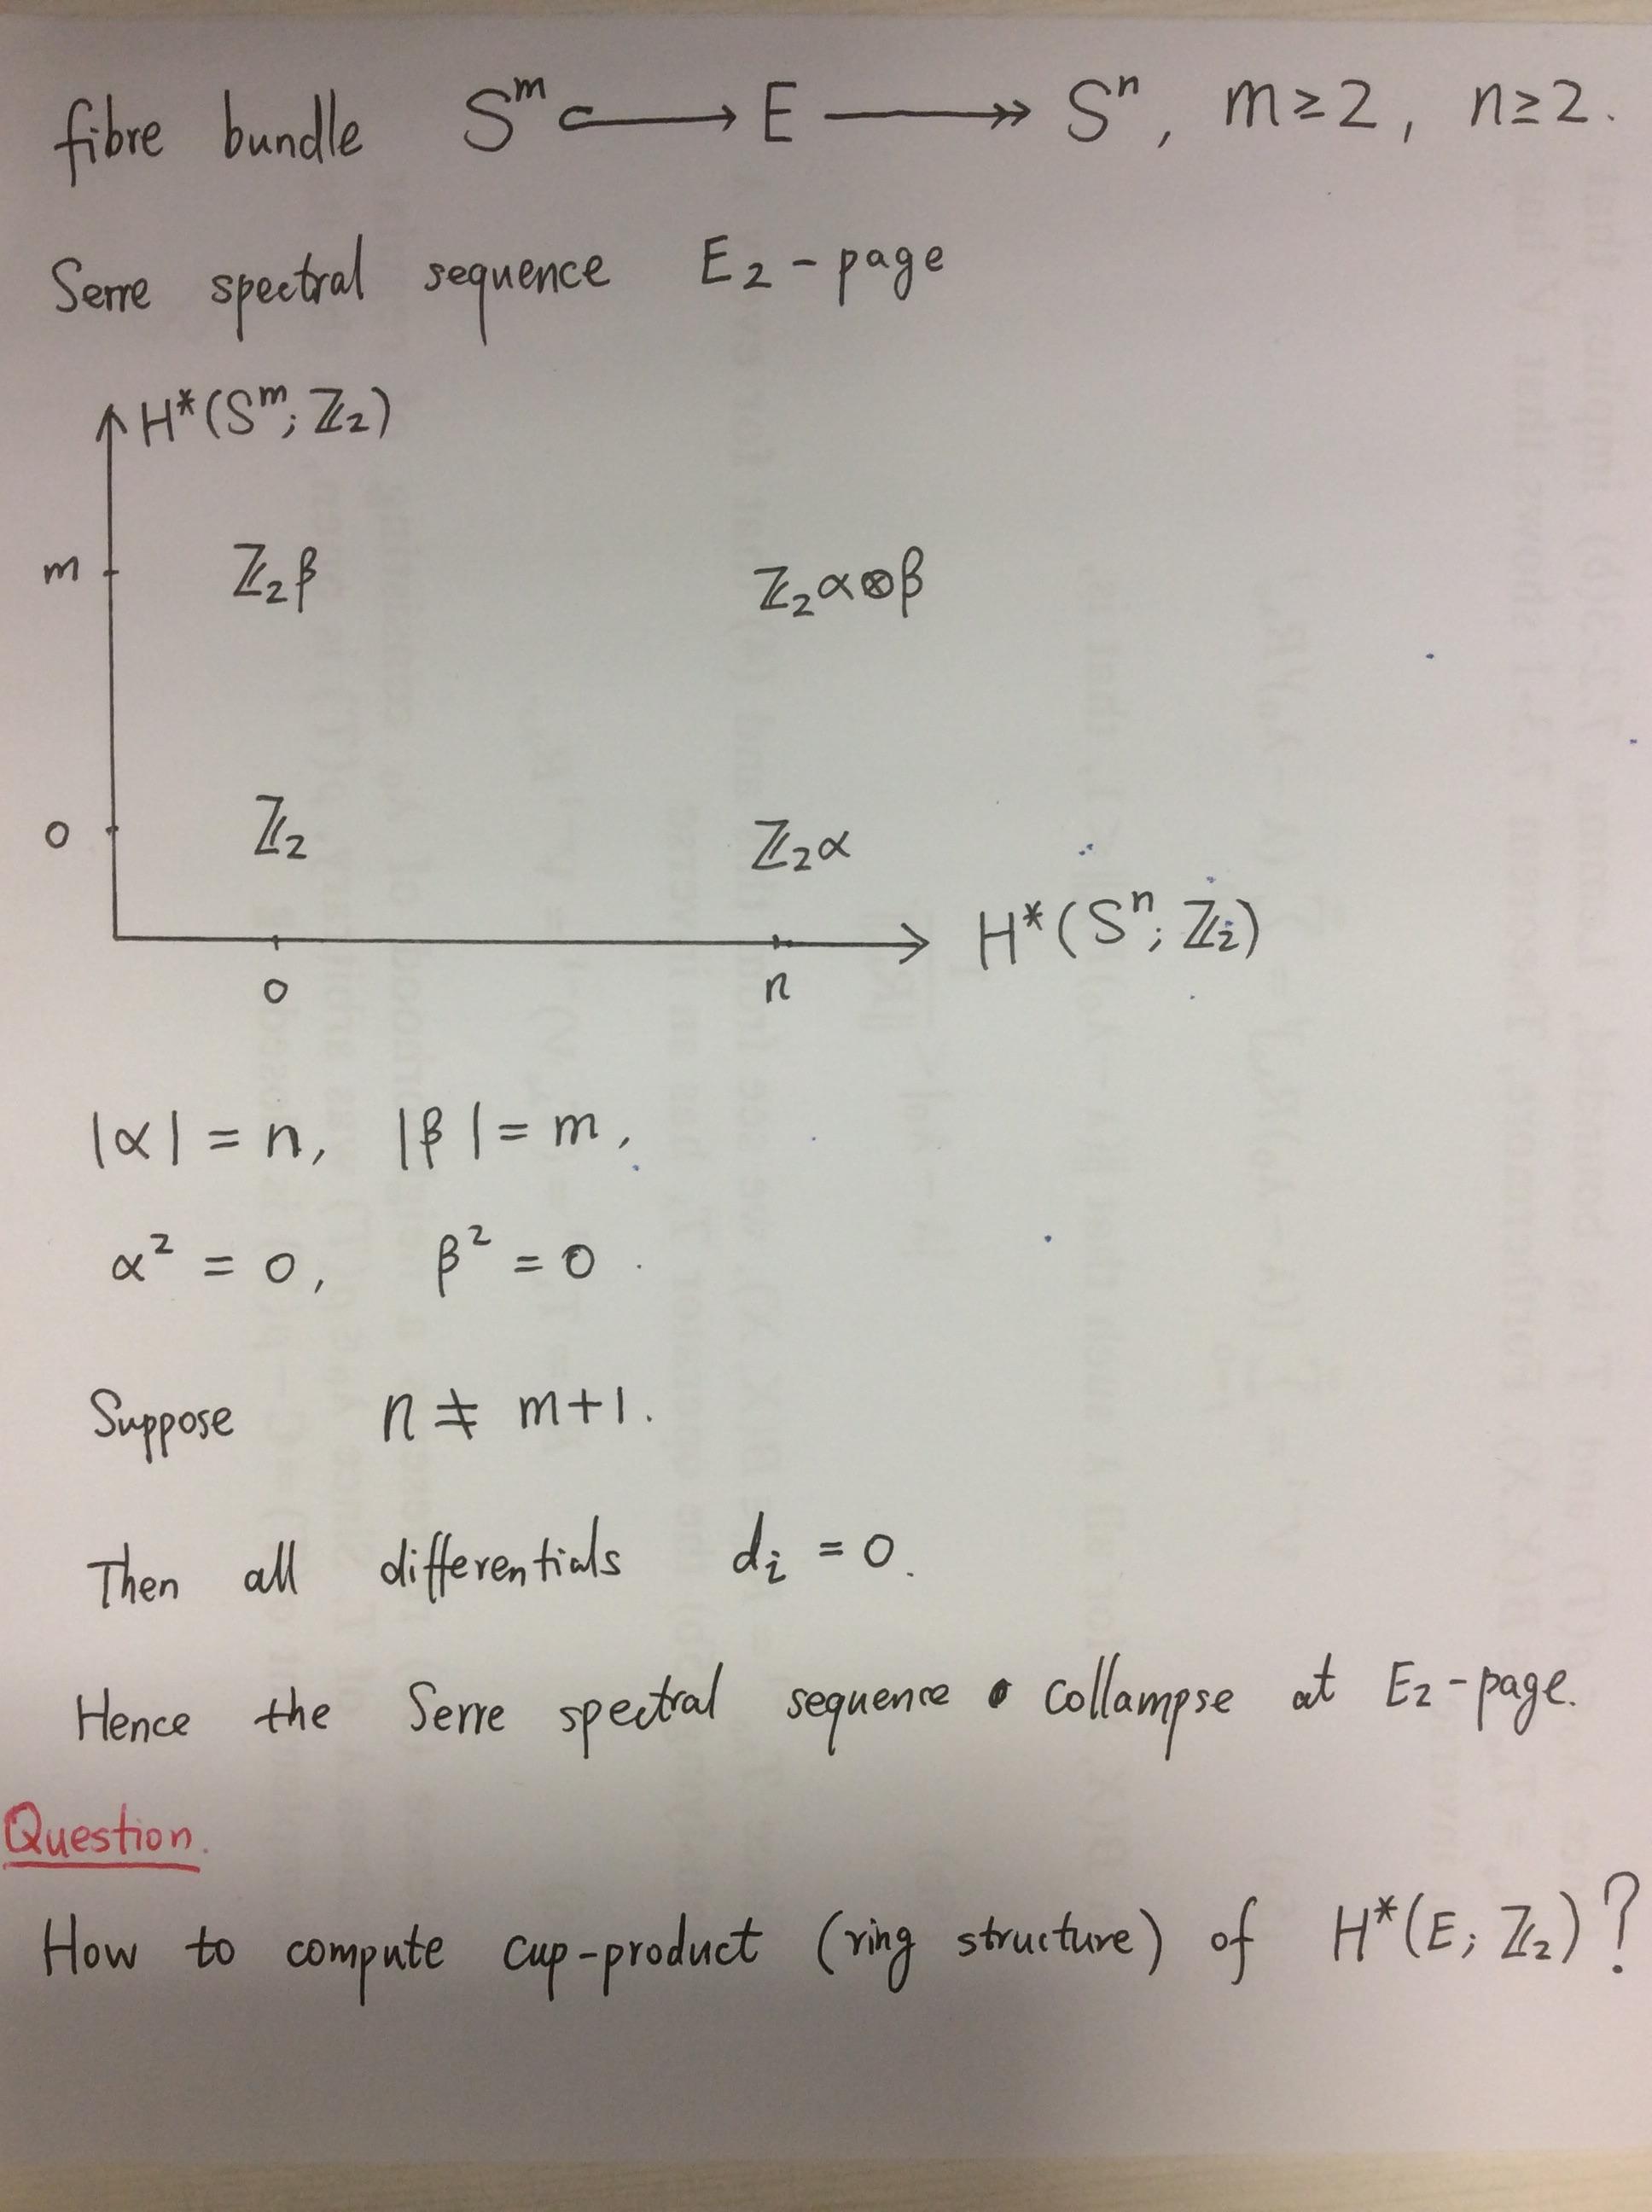 fibre bundle Sᵐ ↪ E ↠ Sⁿ, m≥2, n≥2.
Serre spectral sequence E₂-page
H*(Sᵐ; ℤ₂)
m ℤ₂β ℤ₂α⊗β
0 ℤ₂ ℤ₂α
H*(Sⁿ; ℤ₂)
0 n
|α| = n, |β| = m,
α² = 0, β² = 0.
Suppose n ≠ m+1.
Then all differentials dᵢ = 0.
Hence the Serre spectral sequence collampse at E₂-page.
Question.
How to compute cup-product (ring structure) of H*(E; ℤ₂)?